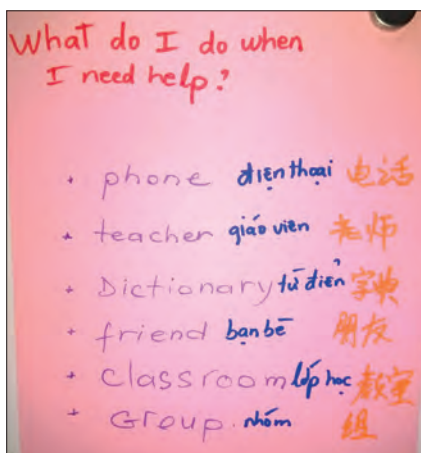 What do I do when
I need help?
+ phone điện thoại 电话
+ teacher giáo viên 老师
+ Dictionary từ điển 字典
+ friend bạn bè 朋友
+ classroom lớp học 教室
+ Group. nhóm 组